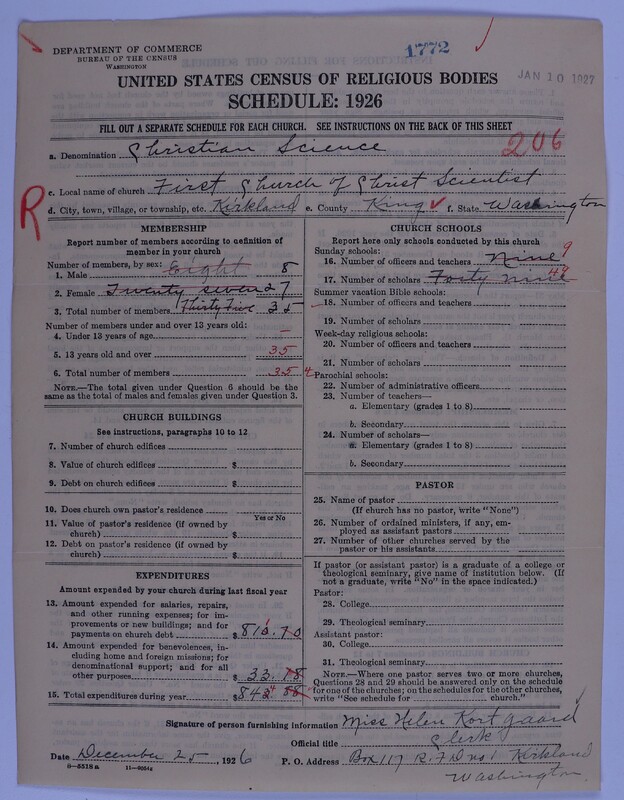 1772
DEPARTMENT OF COMMERCE
BUREAU OF THE CENSUS
WASHINGTON
JAN 10 1927
UNITED STATES CENSUS OF RELIGIOUS BODIES
SCHEDULE: 1926
FILL OUT A SEPARATE SCHEDULE FOR EACH CHURCH. SEE INSTRUCTIONS ON THE BACK OF THIS SHEET
a. Denomination Christian Science
206
R
c. Local name of church First Church of Christ Scientist
d. City, town, village, or township, etc. Kirkland e. County King f. State Washington
MEMBERSHIP
Report number of members according to definition of
member in your church
Number of members, by sex:
1. Male Eight 8
2. Female Twenty seven 27
3. Total number of members Thirty Five 35
Number of members under and over 13 years old:
4. Under 13 years of age –
5. 13 years old and over 35
6. Total number of members 35
NOTE.—The total given under Question 6 should be
the same as the total of males and females given under Question 3.
CHURCH BUILDINGS
See instructions, paragraphs 10 to 12
7. Number of church edifices
8. Value of church edifices $
9. Debt on church edifices $
10. Does church own pastor's residence?
Yes or No
11. Value of pastor's residence (if owned by
church) $
12. Debt on pastor's residence (if owned by
church) $
EXPENDITURES
Amount expended by your church during last fiscal year
13. Amount expended for salaries, repairs,
and other running expenses; for im-
provements or new buildings; and for
payments on church debt $ 810.70
14. Amount expended for benevolences,
including home and foreign missions; for
denominational support; and for all
other purposes $ 33.18
15. Total expenditures during year $
CHURCH SCHOOLS
Report here only schools conducted by this church
Sunday schools:
16. Number of officers and teachers Nine 9
17. Number of scholars Forty nine 49
Summer vacation Bible schools:
18. Number of officers and teachers
19. Number of scholars
Week-day religious schools:
20. Number of officers and teachers
21. Number of scholars
Parochial schools:
22. Number of administrative officers
23. Number of teachers—
a. Elementary (grades 1 to 8)
b. Secondary
24. Number of scholars—
a. Elementary (grades 1 to 8)
b. Secondary
PASTOR
25. Name of pastor
(If church has no pastor, write "None")
26. Number of ordained ministers, if any, em-
ployed as assistant pastors
27. Number of other churches served by the
pastor or his assistants
If pastor (or assistant pastor) is a graduate of a college or
theological seminary, give name of institution below. (If
not a graduate, write "No" in the space indicated.)
Pastor:
28. College
29. Theological seminary
Assistant pastor:
30. College
31. Theological seminary
NOTE.—Where one pastor serves two or more churches,
Questions 28 and 29 should be answered only on the schedule
for one of the churches; on the schedules for the other churches,
write "See schedule for church."
Signature of person furnishing information Miss Helen Kortgaard
Official title Clerk
Date December 25, 1926 P. O. Address Box 117 R.F.D no 1 Kirkland
Washington.
8—5518 a